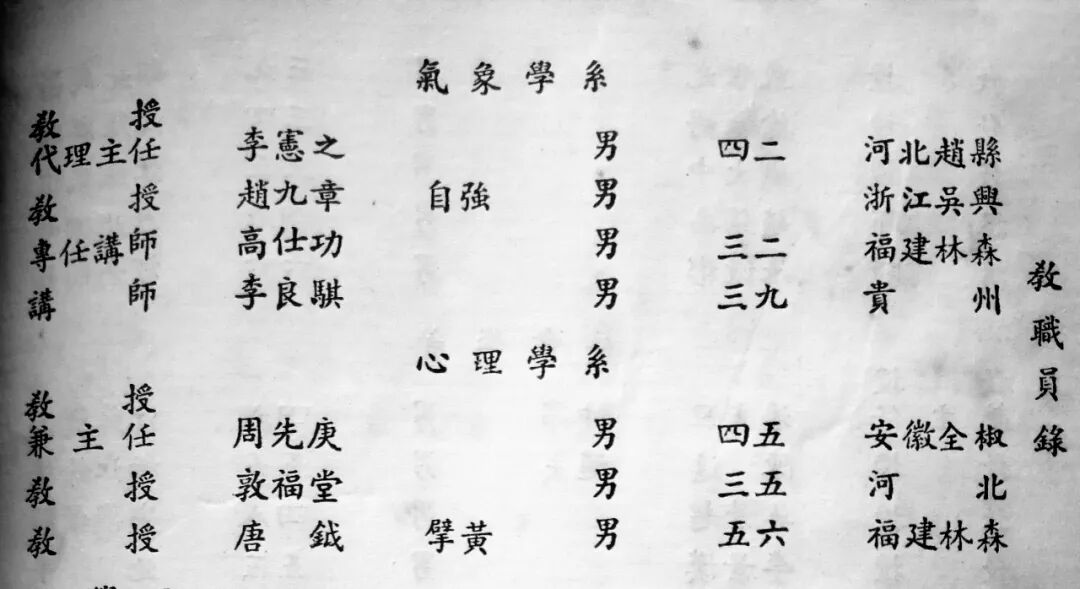 氣象學系
教授
代理主任 李憲之 男 四二 河北趙縣
教授 趙九章 自強 男 浙江吳興
專任講師 高仕功 男 三二 福建林森
講師 李良騏 男 三九 貴州
心理學系
教授
兼主任 周先庚 男 四五 安徽全椒
教授 敦福堂 男 三五 河北
教授 唐鉞 擘黃 男 五六 福建林森
教職員錄